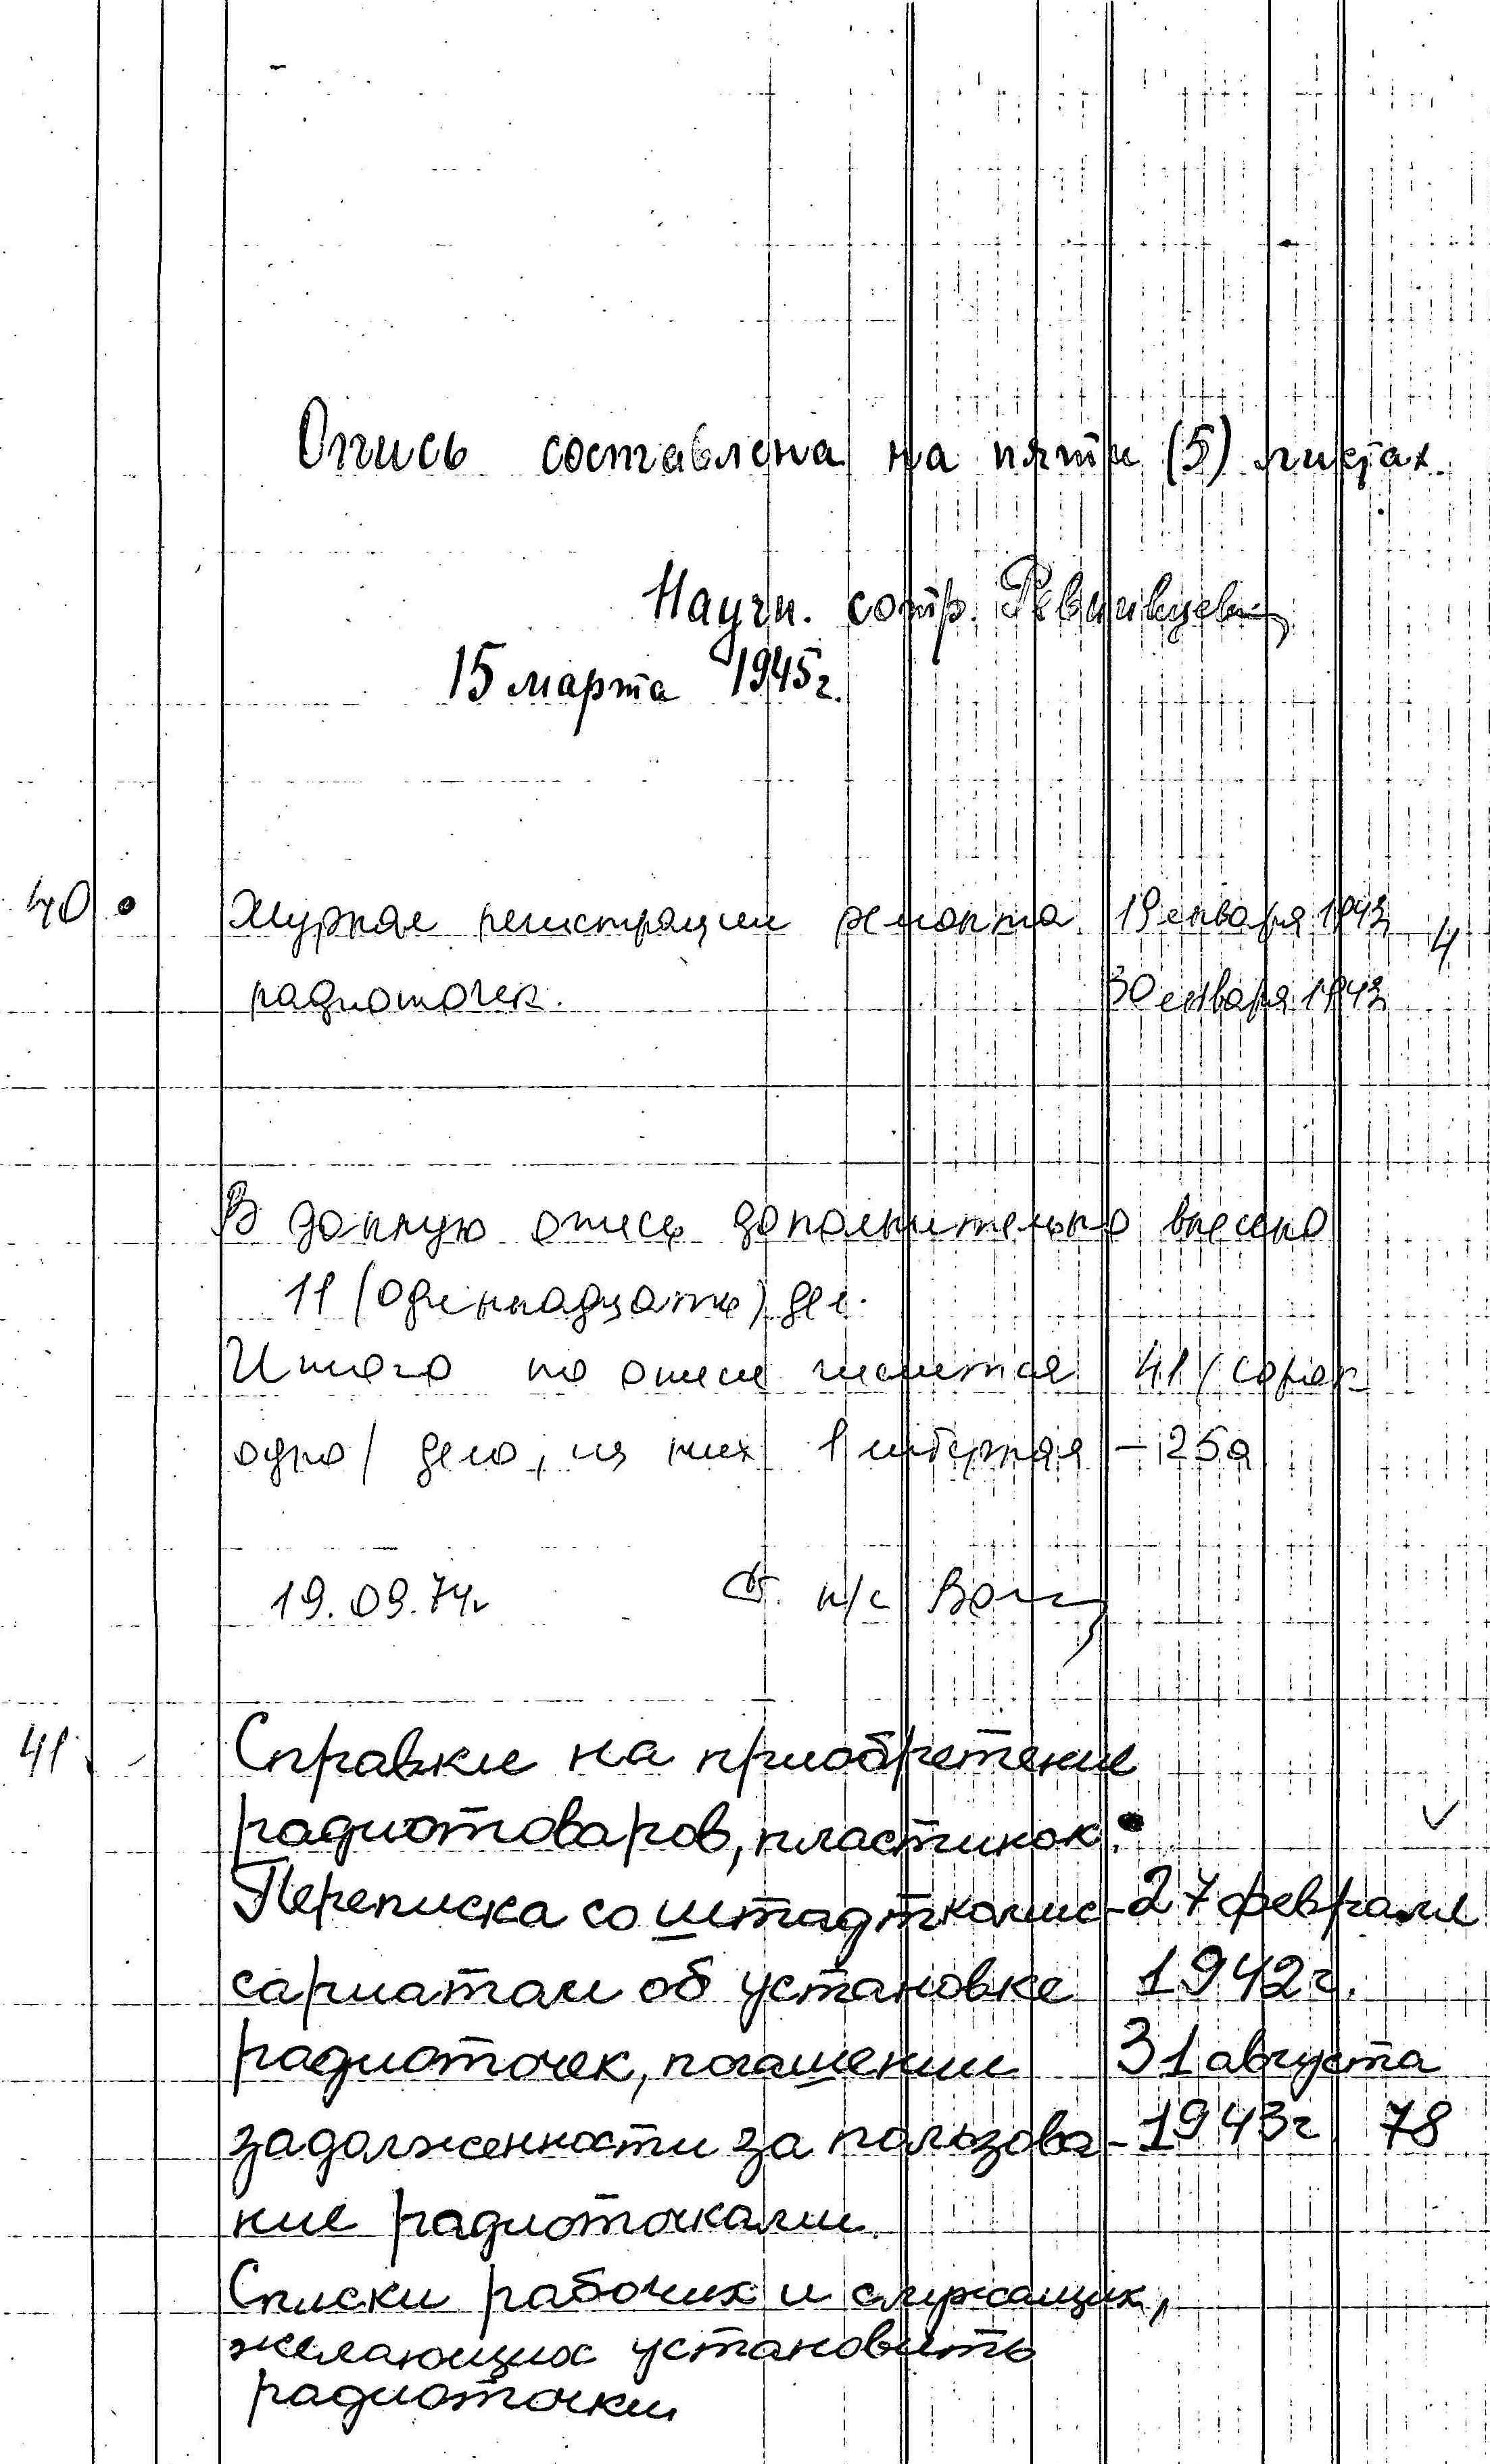 Опись составлена на пяти (5) листах.
Научн. сотр.
15 марта 1945г.
40 Журнал регистрации ремонта 19 января 1943 4
радиоточек. 30 января 1943
В данную опись дополнительно внесено
11 (одиннадцать) дел.
Итого по описи числится 41 (сорок
одно) дело, из них литерная - 25а
19.09.74г Ст. н/с
41 Справки на приобретение
радиотоваров, пластинок.
Переписка со штадткомис- 27 февраля
сариатом об установке 1942г.
радиоточек, погашении 31 августа
задолженности за пользова- 1943г 78
ние радиоточками.
Списки рабочих и служащих,
желающих установить
радиоточки